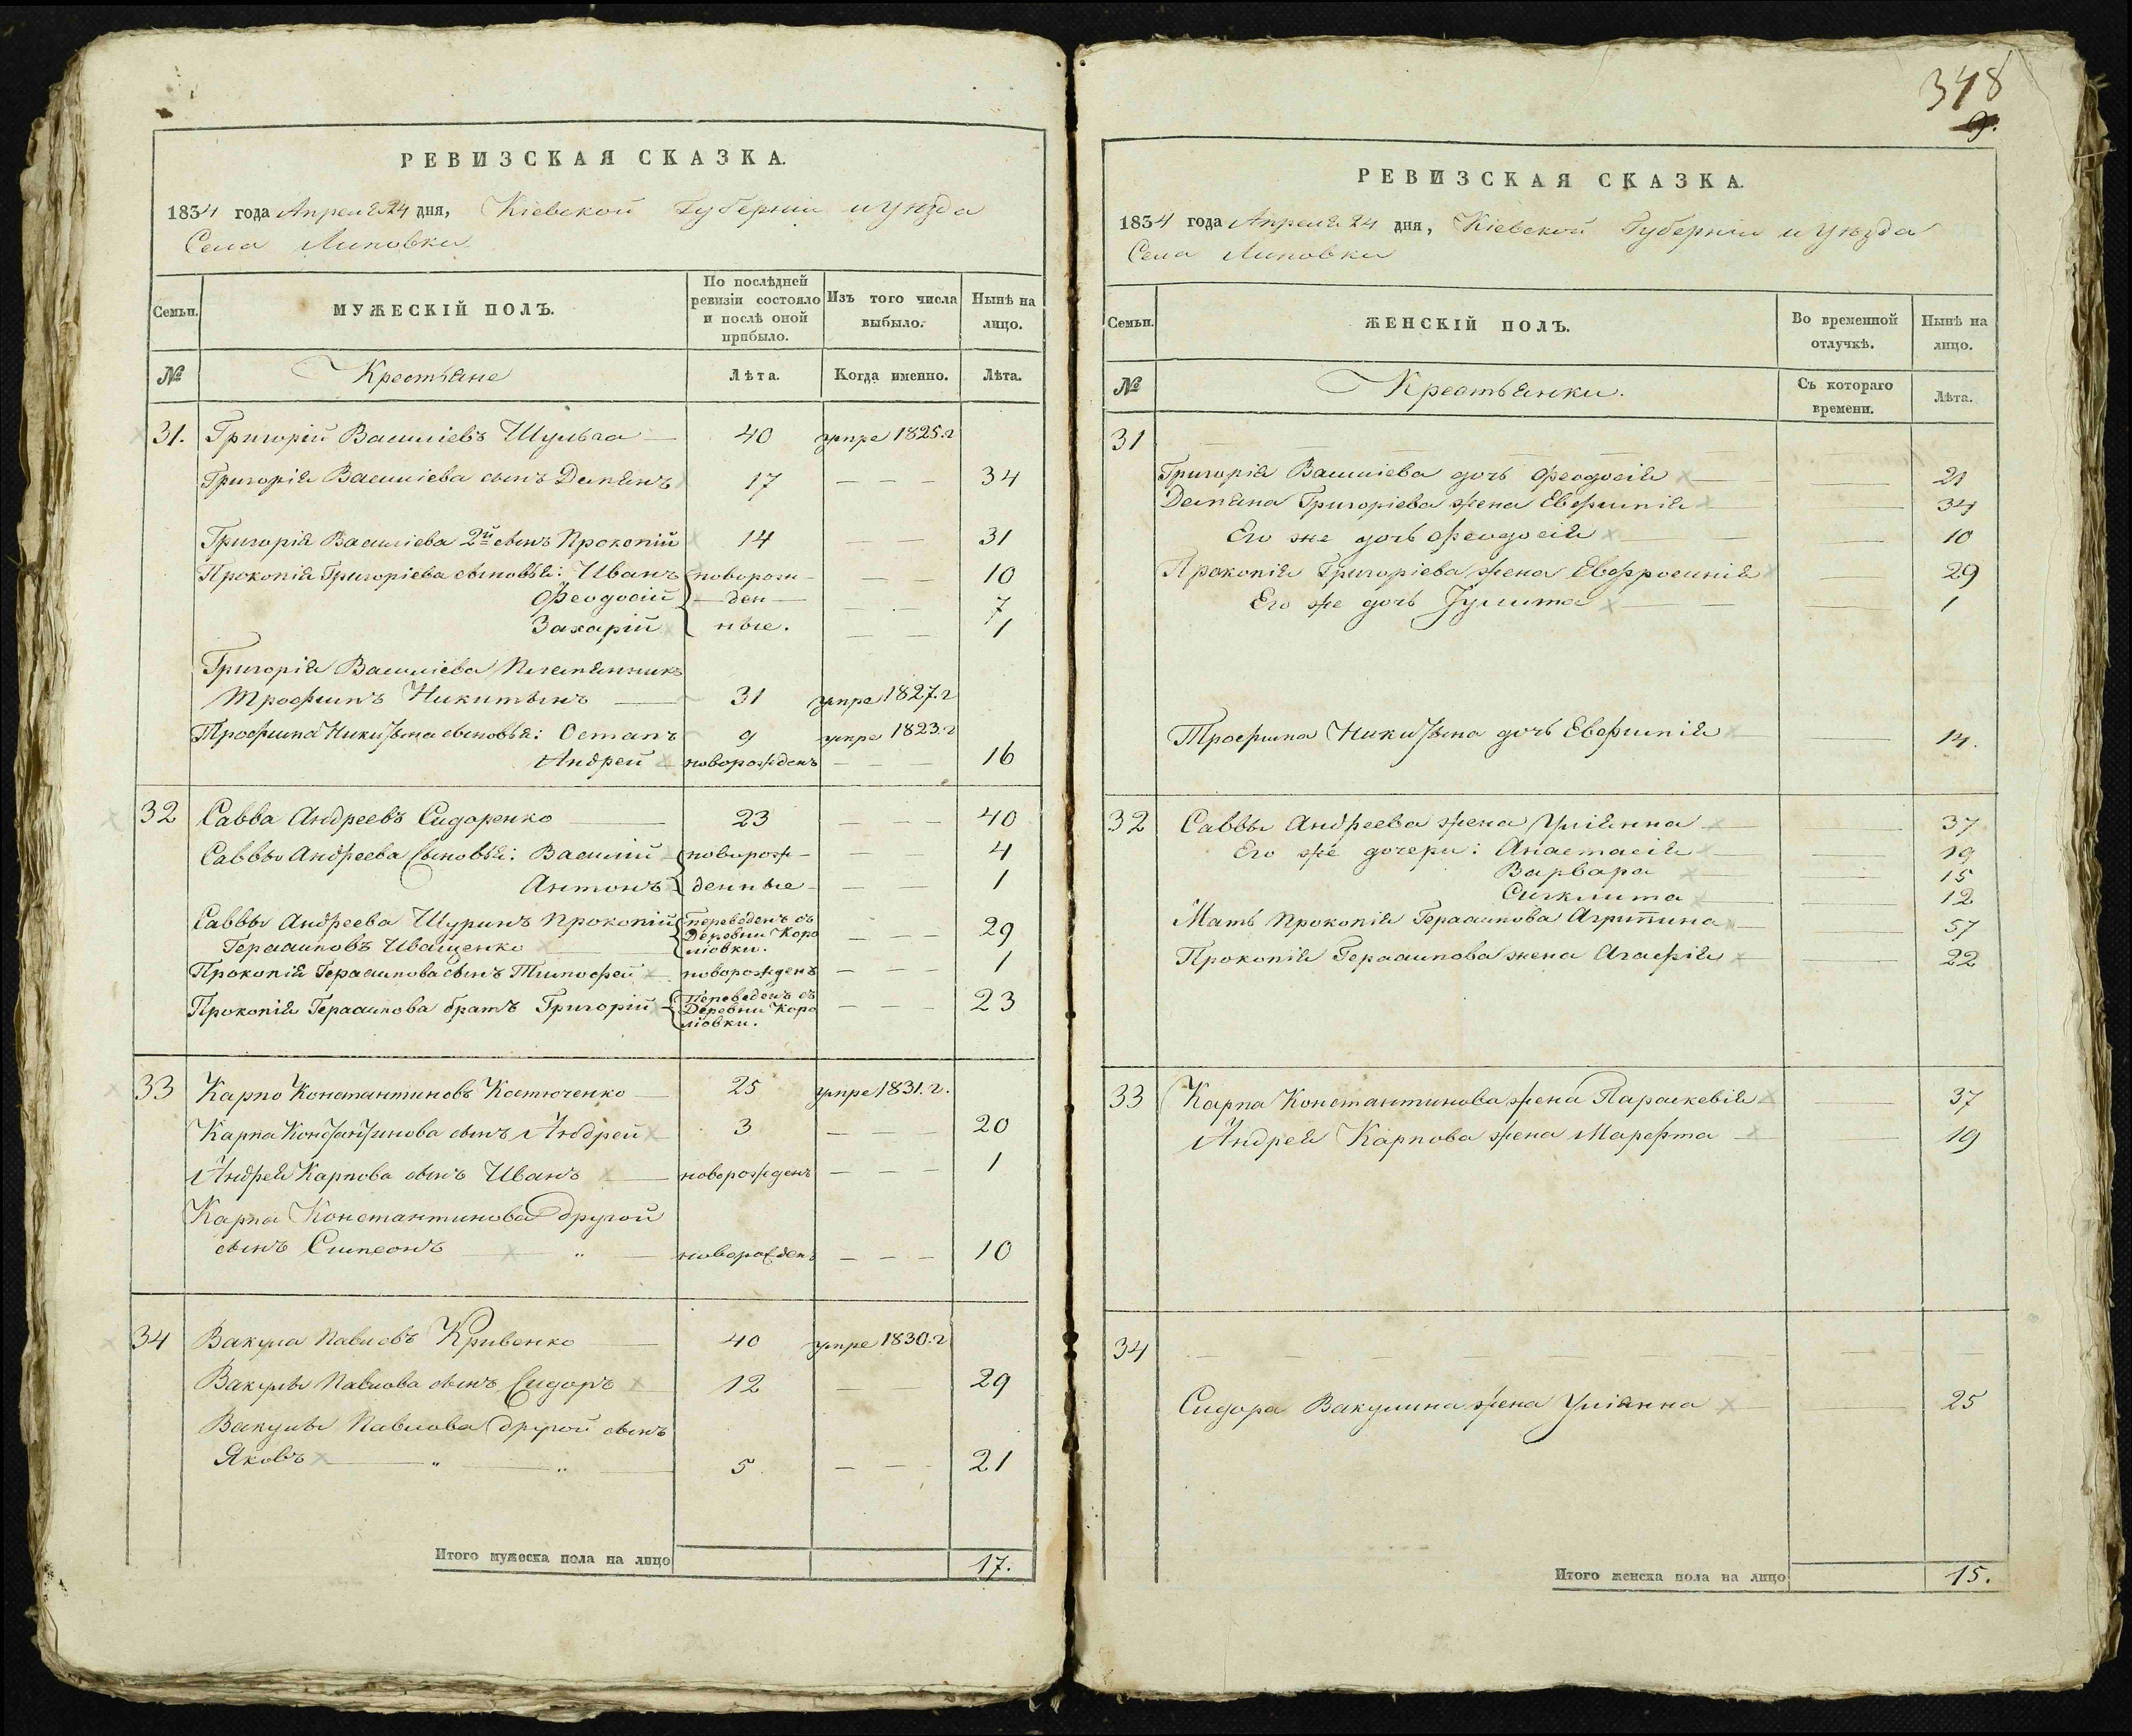 РЕВИЗСКАЯ СКАЗКА.
1834 года Апреля 24 дня, Кіевской Губерніи и Уѣзда
Села Липовки
Семьи. МУЖЕСКІЙ ПОЛЪ. По послѣдней ревизіи состояло и послѣ оной прибыло. Изъ того числа выбыло. Нынѣ на лицо.
№ Крестьяне Лѣта. Когда именно. Лѣта.
31. Григорій Василіевъ Шульга — 40 умре 1825. г
Григорія Василіева сынъ Демянъ 17 — — — 34
Григорія Василіева 2й сынъ Прокопій 14 — — — 31
Прокопія Григоріева сыновья: Иванъ новорож- — 10
Феодосій ден — 7
Захарій ные. — — 1
Григорія Василіева Племянникъ
Трофимъ Никитинъ — 31 умре 1827. г
Трофима Никитина сыновья: Остапъ 9 умре 1823. г
Андрей новорожденъ — — — 16
32 Савва Андреевъ Сидоренко — 23 — — — 40
Саввы Андреева сыновья: Василій новорож- — 4
Антонъ денные — — — 1
Саввы Андреева Шуринъ Прокопій Переведенъ съ
Герасимовъ Иващенко Деревни Коро ліовки. — — — 29
Прокопія Герасимова сынъ Тимофей новорожденъ — — — 1
Прокопія Герасимова братъ Григорій Переведенъ съ Деревни Коро ліовки. — — — 23
33 Карпо Константиновъ Костюченко — 25 умре 1831. г.
Карпа Константинова сынъ Андрей 3 — — 20
Андрея Карпова сынъ Иванъ — новорожденъ — — — 1
Карпа Константинова другой
сынъ Симеонъ — „ — новорожденъ — — — 10
34 Вакула Павловъ Кривенко — 40 умре 1830. г
Вакулы Павлова сынъ Сидоръ 12 — — 29
Вакулы Павлова другой сынъ
Яковъ — „ — „ — 5 — — — 21
Итого мужеска пола на лицо 17.
348
9.
РЕВИЗСКАЯ СКАЗКА.
1834 года Апреля 24 дня, Кіевской Губерніи и Уѣзда
Села Липовки
Семьи. ЖЕНСКІЙ ПОЛЪ. Во временной отлучкѣ. Нынѣ на лицо.
№ Крестьянки. Съ котораго времени. Лѣта.
31
Григорія Василіева дочь Феодосія — 21
Демяна Григоріева жена Евфимія — 34
Его же дочь Феодосія — 10
Прокопія Григоріева жена Евфросинія — 29
Его же дочь Іулита — 1
Трофима Никитина дочь Евфимія — 14.
32 Саввы Андреева жена Уліянна — 37
Его же дочери: Анастасія — 19
Варвара — 15
Сигклита — 12
Мать Прокопія Герасимова Агрипина — 57
Прокопія Герасимова жена Агафія — 22
33 Карпа Константинова жена Параскевія — 37
Андрея Карпова жена Марфта — 19
34 — — — — — — —
Сидора Вакулина жена Уліянна — 25
Итого женска пола на лицо 15.